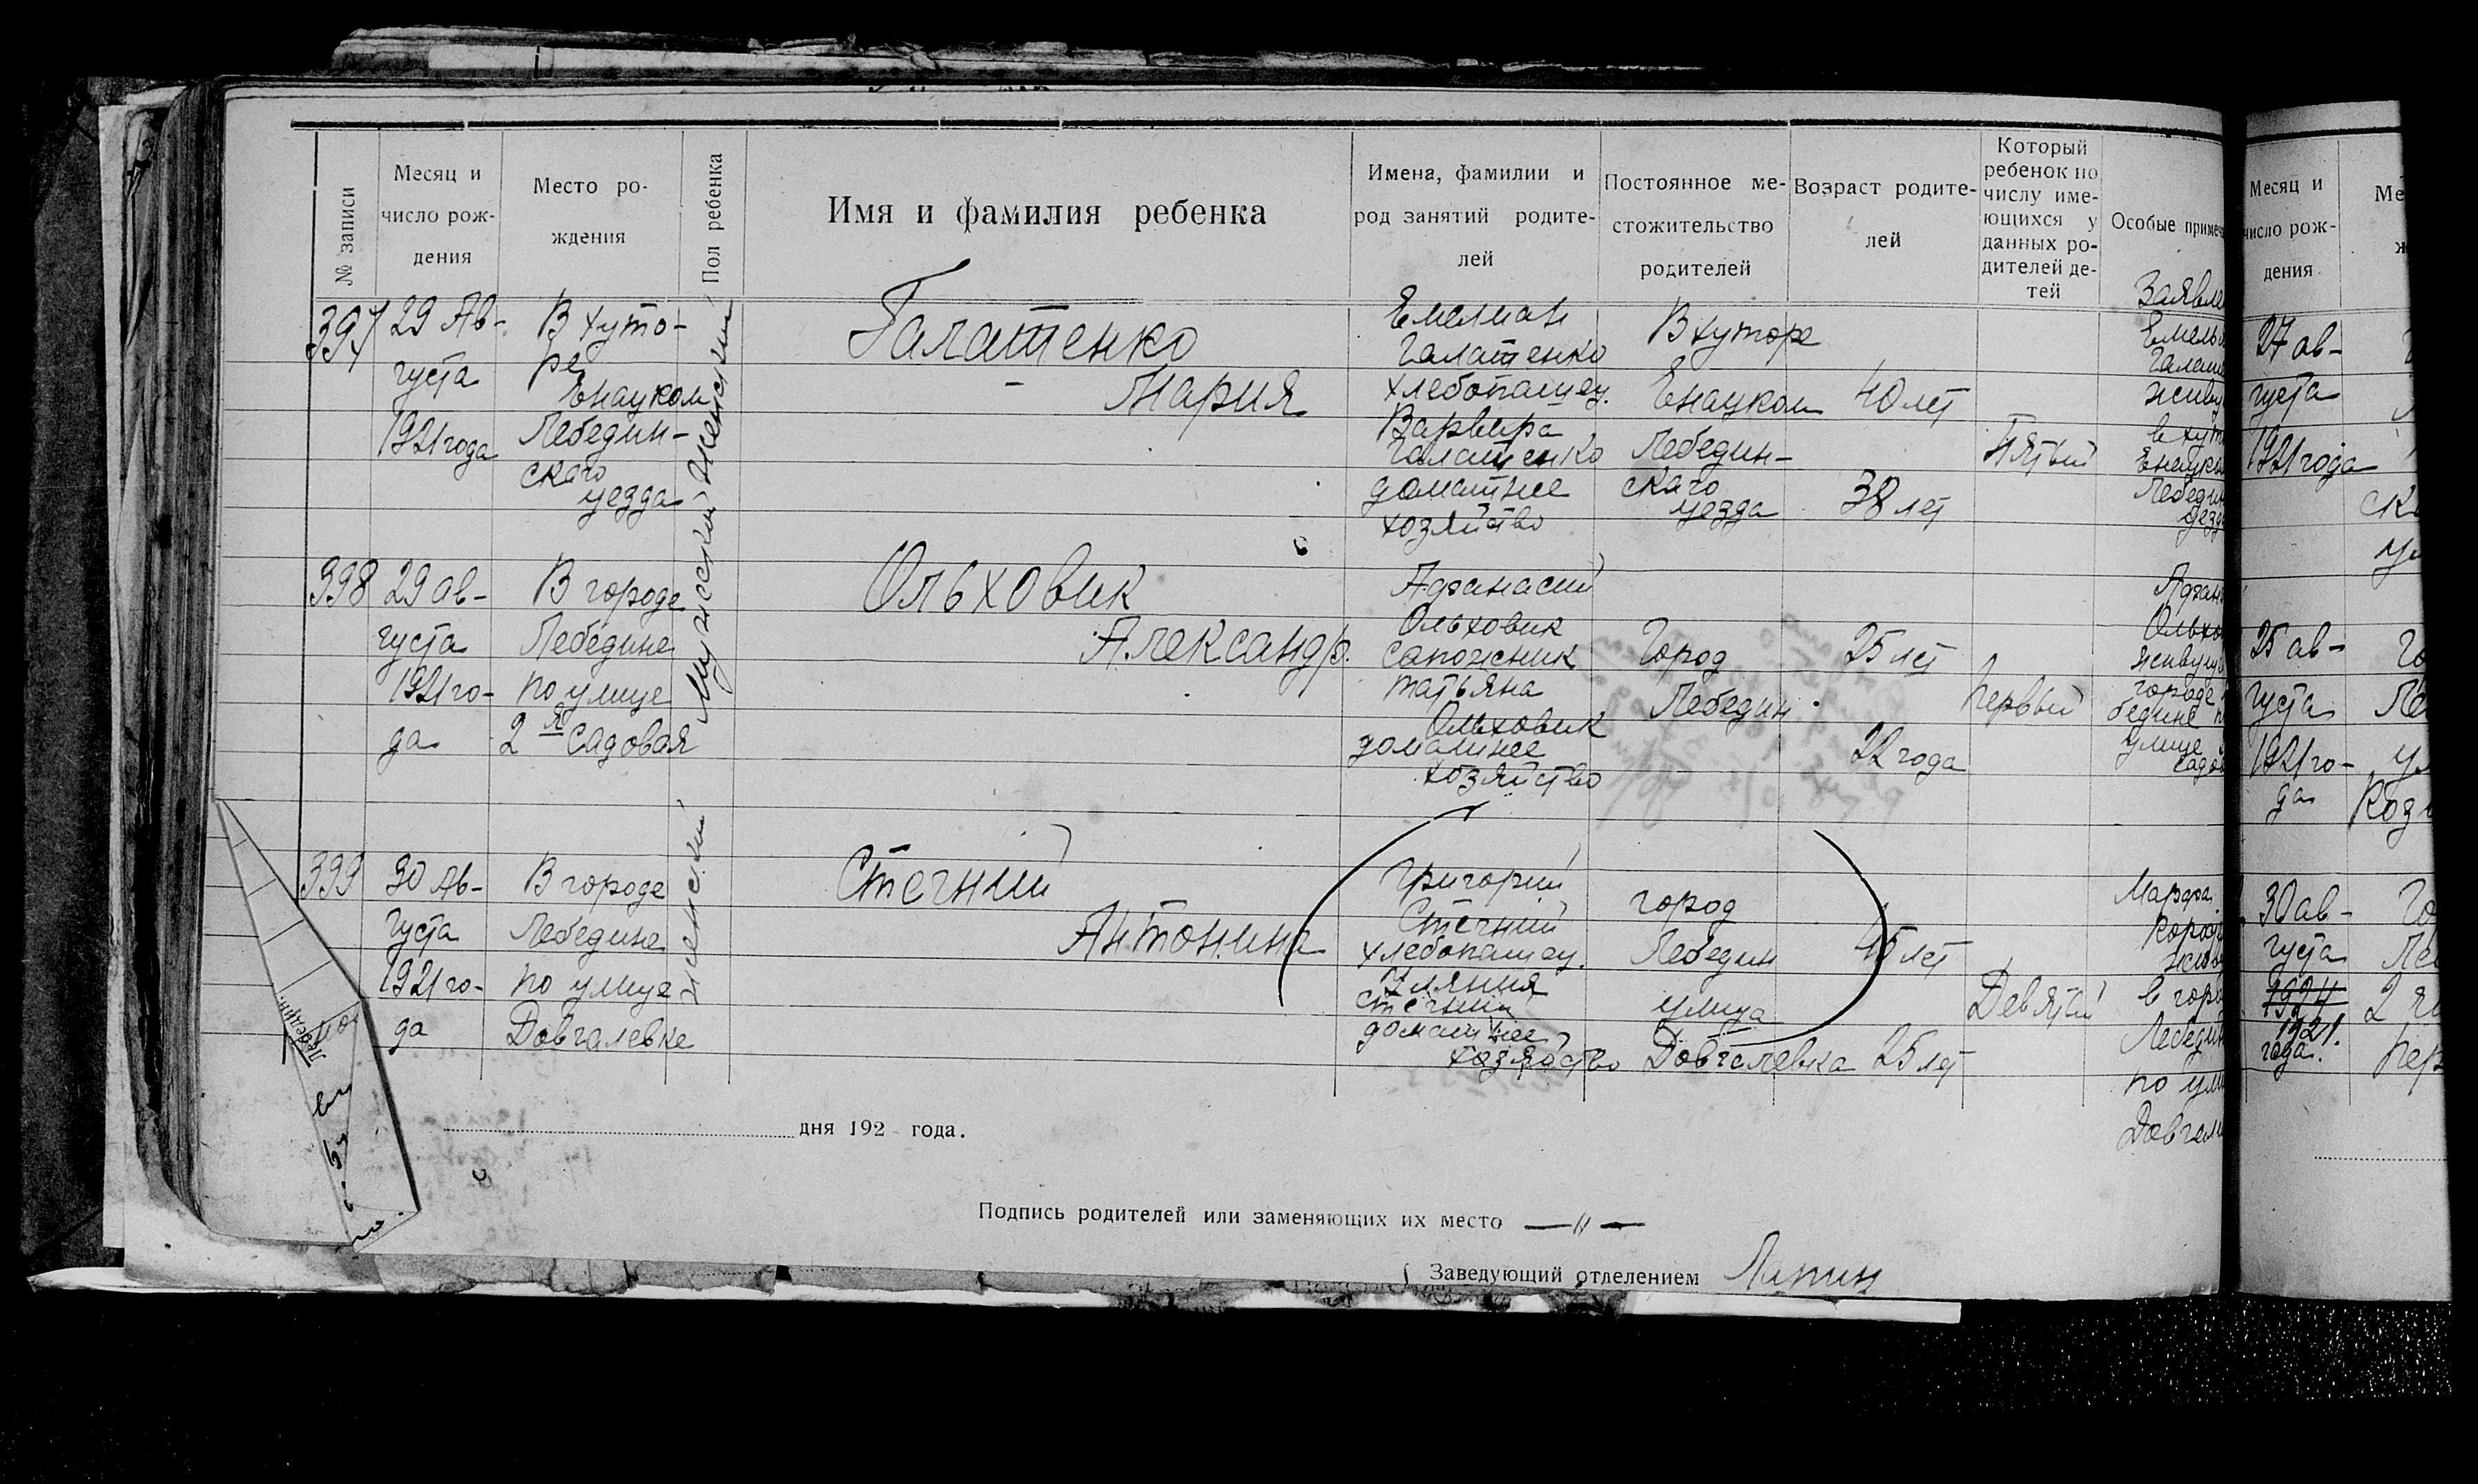 № записи
Месяц и
число рож-
дения
Место ро-
ждения
Пол ребенка
Имя и фамилия ребенка
Имена, фамилии и
род занятий родите-
лей
Постоянное ме-
стожительство
родителей
Возраст родите-
лей
Который
ребенок по
числу име-
ющихся у
данных ро-
дителей де-
тей
Особые примеча
397
29 Ав-
густа
1921 года
В хуто-
ре
Лебедин-
скаго
уезда
Женский
Галатенко
Мария
Емелиан
Галатенко
хлебопашец.
Варвара
Галатенко
домашнее
хозяйство
В хуторе
Лебедин-
скаго
уезда
40 лет
38 лет
Пятый
Заявле
Емель
Галат
живу
в хут
Лебедин
уезд
398
29 ав-
густа
1921 го-
да
В городе
Лебедине
по улице
2 я Садовая
Мужеский
Ольховик
Александр.
Афанасий
Ольховик
сапожник
Татьяна
Ольховик
домашнее
хозяйство
Город
Лебедин.
25 лет
22 года
Первый
Афан
Ольхо
живущ
городе
бедине
улице
Садов
399
30 Ав-
густа
1921 го-
да
В городе
Лебедине
по улице
Довгалевке
женский
Стегний
Антонина
Григорий
Стегний
хлебопашец.
Стегний
домашнее
хозяйство
город
Лебедин
улица
Довгалевка
45 лет
25 лет
Девятый
Марфа
в горо
Лебедин
по ули
Довгале
дня 192 года.
Подпись родителей или заменяющих их место — 〃 —
Заведующий отделением Лапин
Месяц и
число рож-
дения
Ме
ж
27 ав-
густа
1921 года
25 ав-
густа
1921 го-
да
30 ав-
густа
1921.
года.